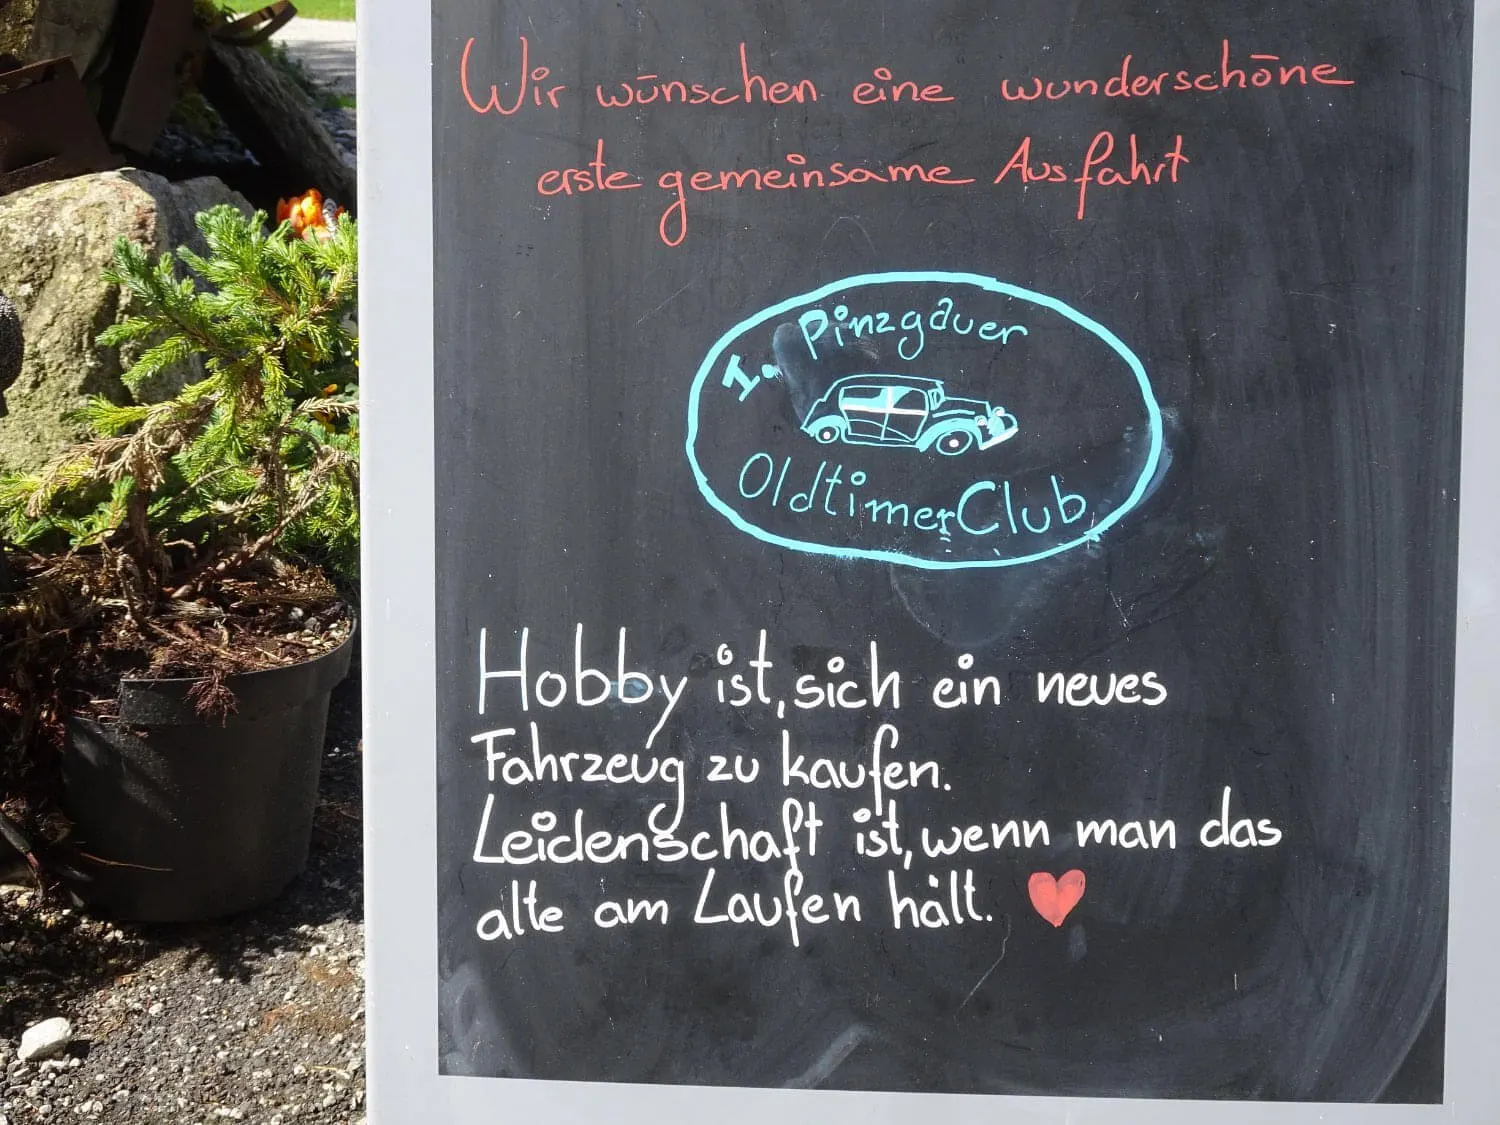 Wir wünschen eine wunderschöne
erste gemeinsame Ausfahrt
I. Pinzgauer
Oldtimer Club
Hobby ist, sich ein neues
Fahrzeug zu kaufen.
Leidenschaft ist, wenn man das
alte am Laufen hält.